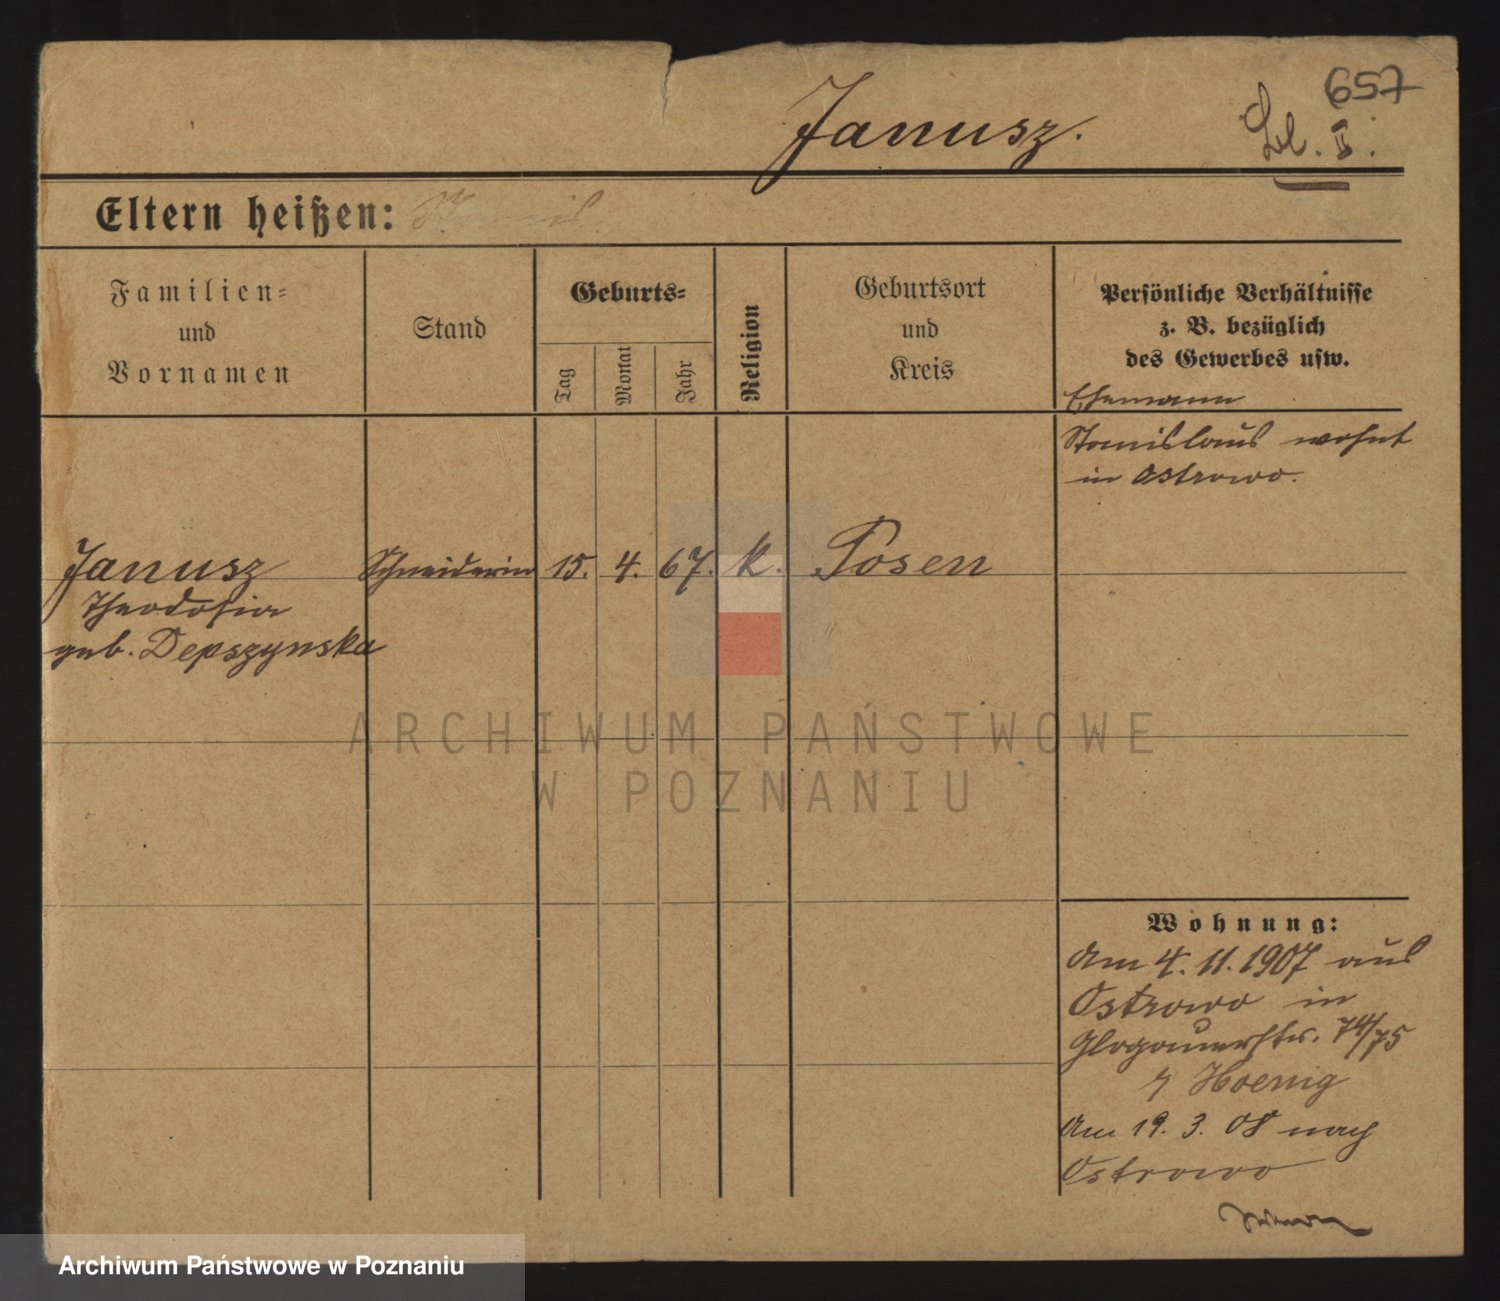 657
Janusz.
Eltern heißen:
Familien-
und
Vornamen
Stand
Geburts-
Tag
Monat
Jahr
Religion
Geburtsort
und
Kreis
Persönliche Verhältnisse
z. B. bezüglich
des Gewerbes usw.
Ehemann
Stanislaus wohnt
in Ostrowo.
Janusz Schneiderin 15. 4. 67. k. Posen
Theodosia
geb. Depszynska
ARCHIWUM PAŃSTWOWE
W POZNANIU
Wohnung:
Am 4. 11. 1907 aus
Ostrowo in
Glogauerstr. 74/75
Hoenig
Am 19. 3. 08 nach
Ostrowo
Archiwum Państwowe w Poznaniu